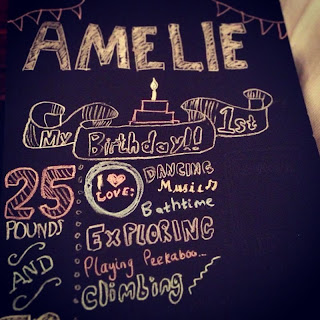 AMELIE
My Birthday!! 1st
25
POUNDS
AND
I ♥
LOVE:
DANCING
Music♫
Bathtime
EXPLORING
Playing Peekaboo...
Climbing